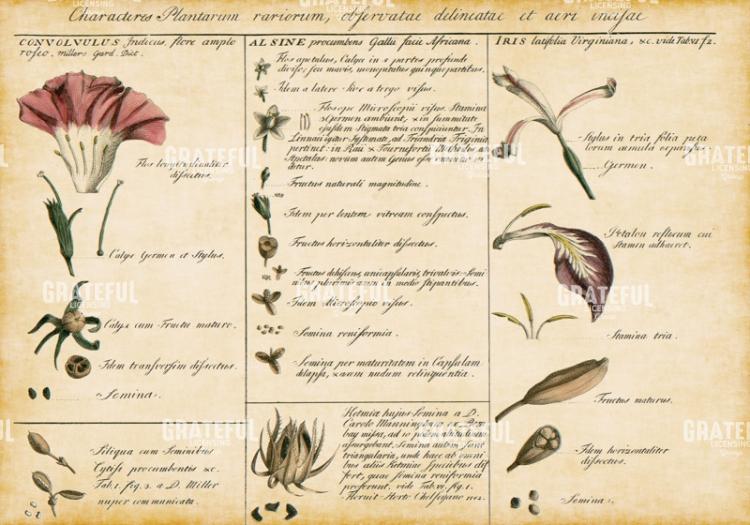 Characteres Plantarum rariorum, observatae delineatae et aeri incisae
CONVOLVULUS Indicus, flore amplo
roseo. Millers Gard. Dict.
Flos longitudinaliter
dissectus.
Calyx Germen et Stylus.
Calyx cum Fructu maturo.
Idem transversim dissectus.
Semina.
Siliqua cum Seminibus
Cytisi procumbentis &c.
Tab. 1. fig. 3. a D. Miller
nuper communicata.
ALSINE procumbens Gallii facie Africana.
Flos apetalus, Calyx in 5 partes profunde
divisus, seu mavis, monopetalus quinquepartitus.
Idem a latere sive a tergo visus.
Flos ope Microscopii visus. Stamina
3 Germen ambiunt, & in summitate
ejusdem Stigmata tria conspiciuntur. In
Linnaei igitur Systemate, ad Triandria Trigynia
pertinet: in Raii & Tournefortii Methodus ad
Apetalas: novum autem Genus
Fructus naturali magnitudine.
Idem per lentem vitream conspectus.
Fructus horizontaliter dissectus.
Fructus dehiscens, unicapsularis, trivalvis Semi-
nibus plurimis in medio stipantibus.
Idem Microscopio visus.
Semina reniformia.
Semina per maturitatem in Capsulam
delapsa, & axem nudum relinquentia.
Ketmia hujus Semina a D.
Carolo Manningham ex Bom
bay missa, ad 10 pedum altitudinem
assurgebant. Semina autem sunt
triangularia, unde haec ab omni
bus aliis Ketmiae Speciebus dif
fert, quae semina reniformia
proferunt. vide Tab. vi. fig. 1.
Floruit Horto Chelseyano
IRIS latifolia Virginiana, &c. vide Tab. vi f 2.
Stylus in tria folia peta
lorum aemula expansus.
Germen.
Petalon reflexum cui
Stamen adhaeret.
Stamina tria.
Fructus maturus.
Idem horizontaliter
dissectus.
Semina.
GRATEFUL
LICENSING